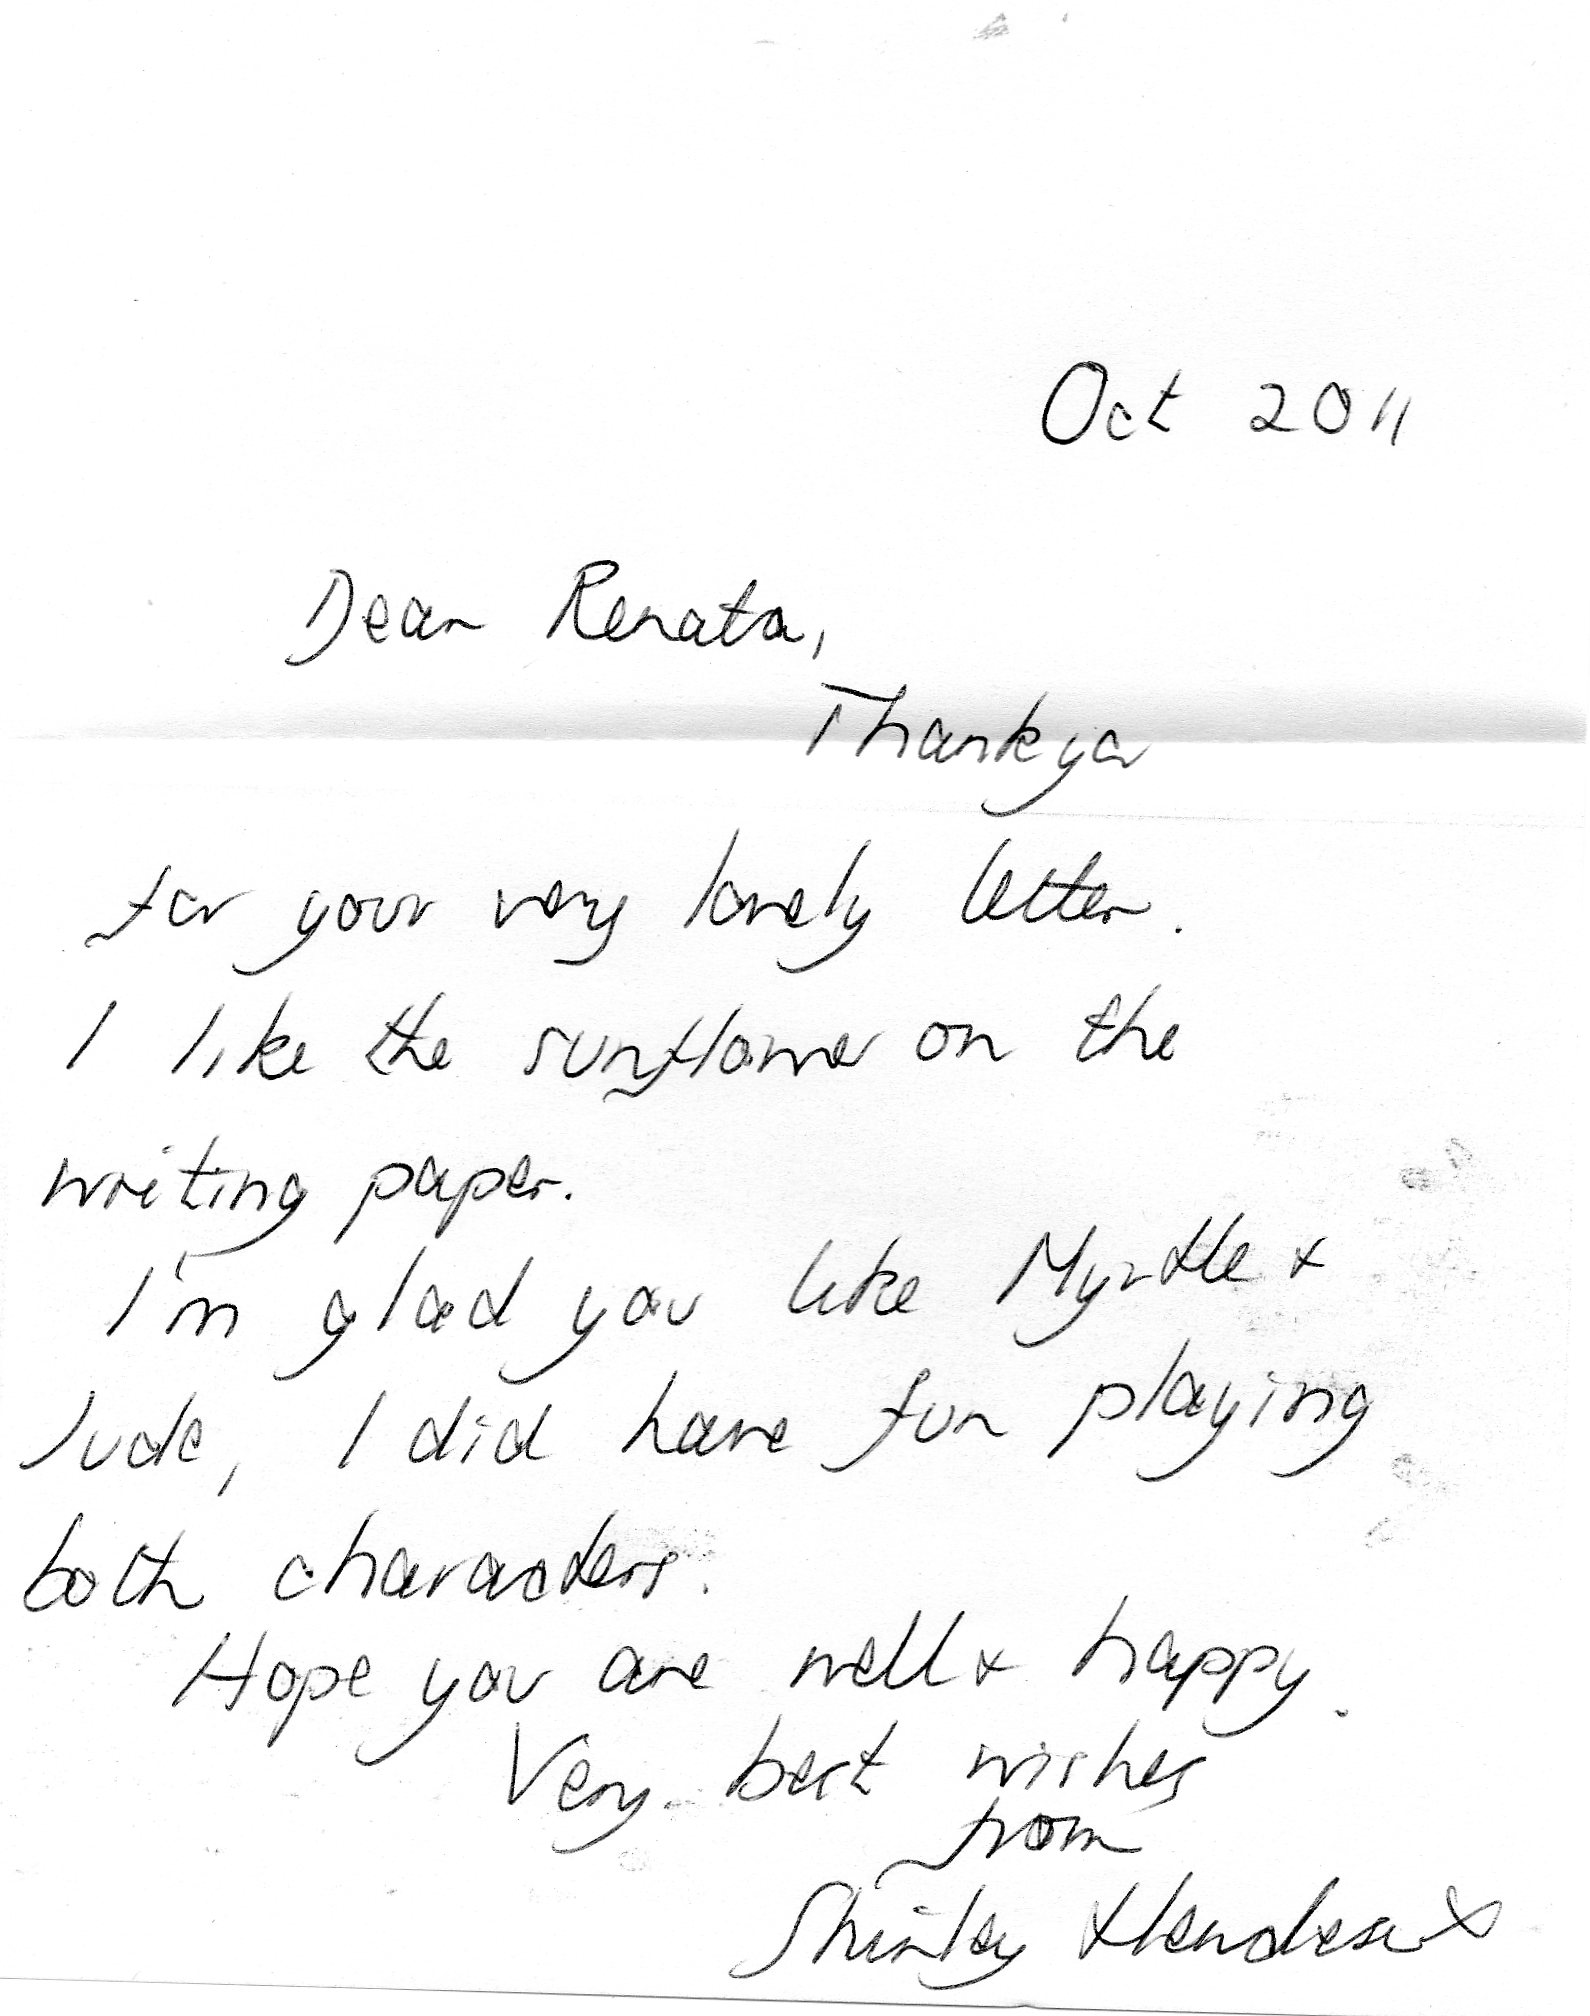 Oct 2011
Dear Renata,
Thankyou
for your very lovely letter.
I like the sunflower on the
writing paper.
I'm glad you like Myrtle &
Jude, I did have fun playing
both characters.
Hope you are well & happy.
Very best wishes
from
Shirley Henderson x